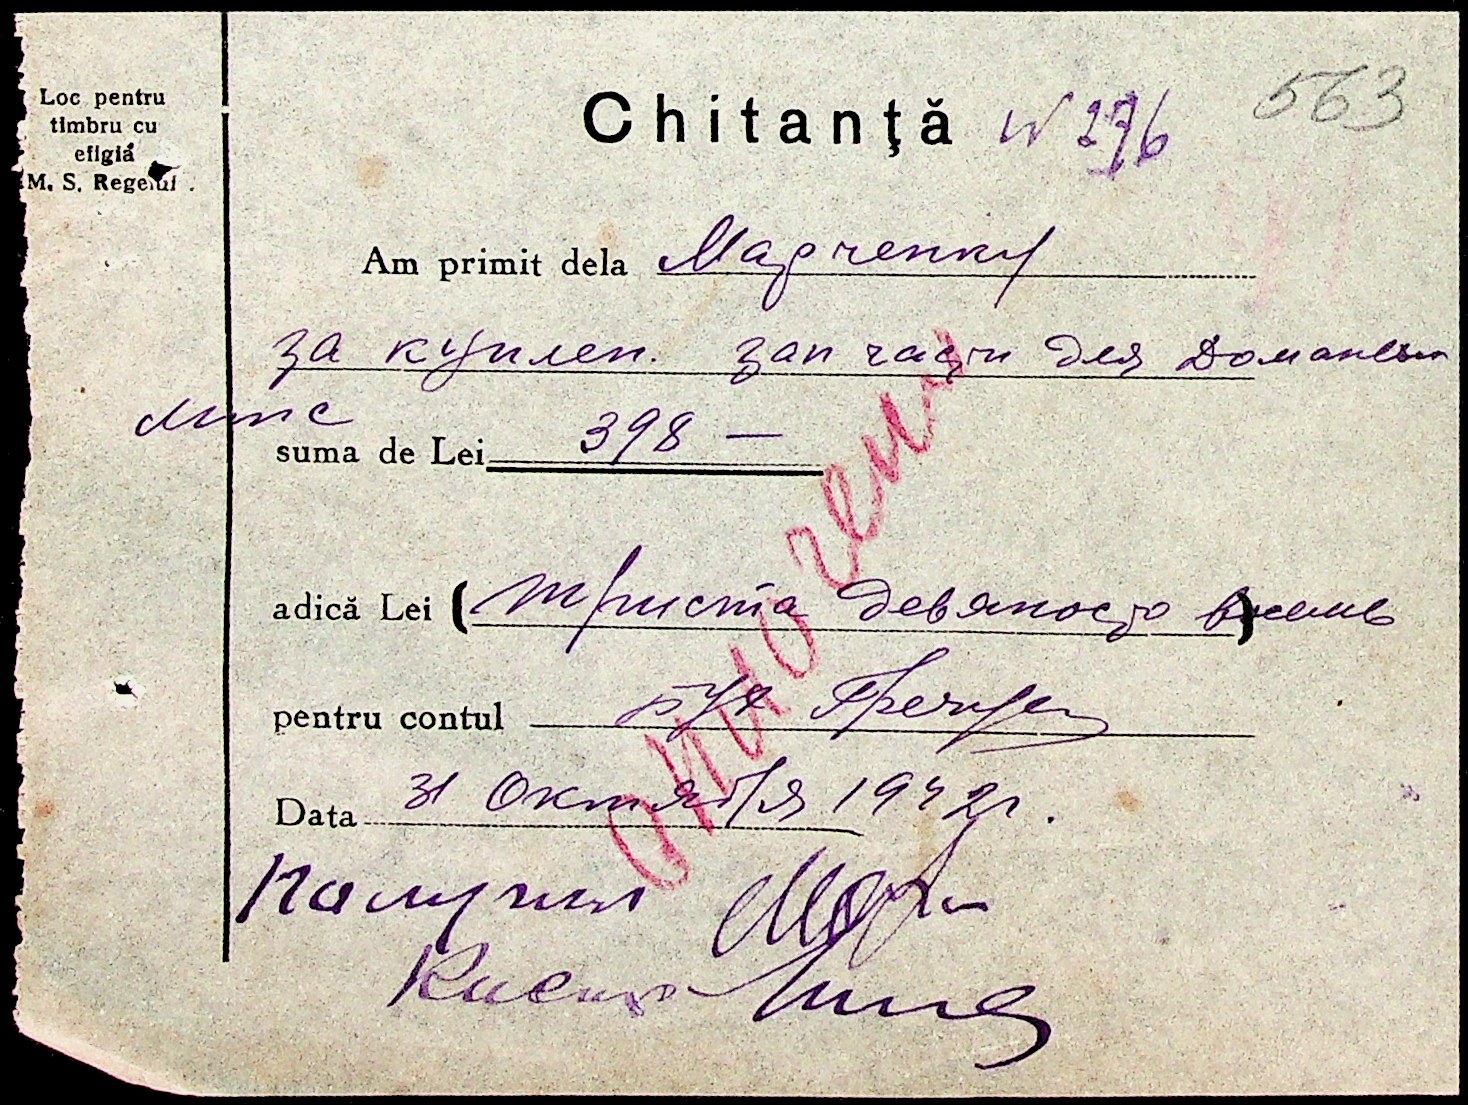 Loc pentru
timbru cu
efigia
M. S. Regelui .
563
Chitanţă N 276
Am primit dela Марченку
за куплен. зап части для
суma de Lei 398 —
adică Lei (триста девяносто восемь)
pentru contul
Data 31 Октября 1942 г.
Получил
оплочено